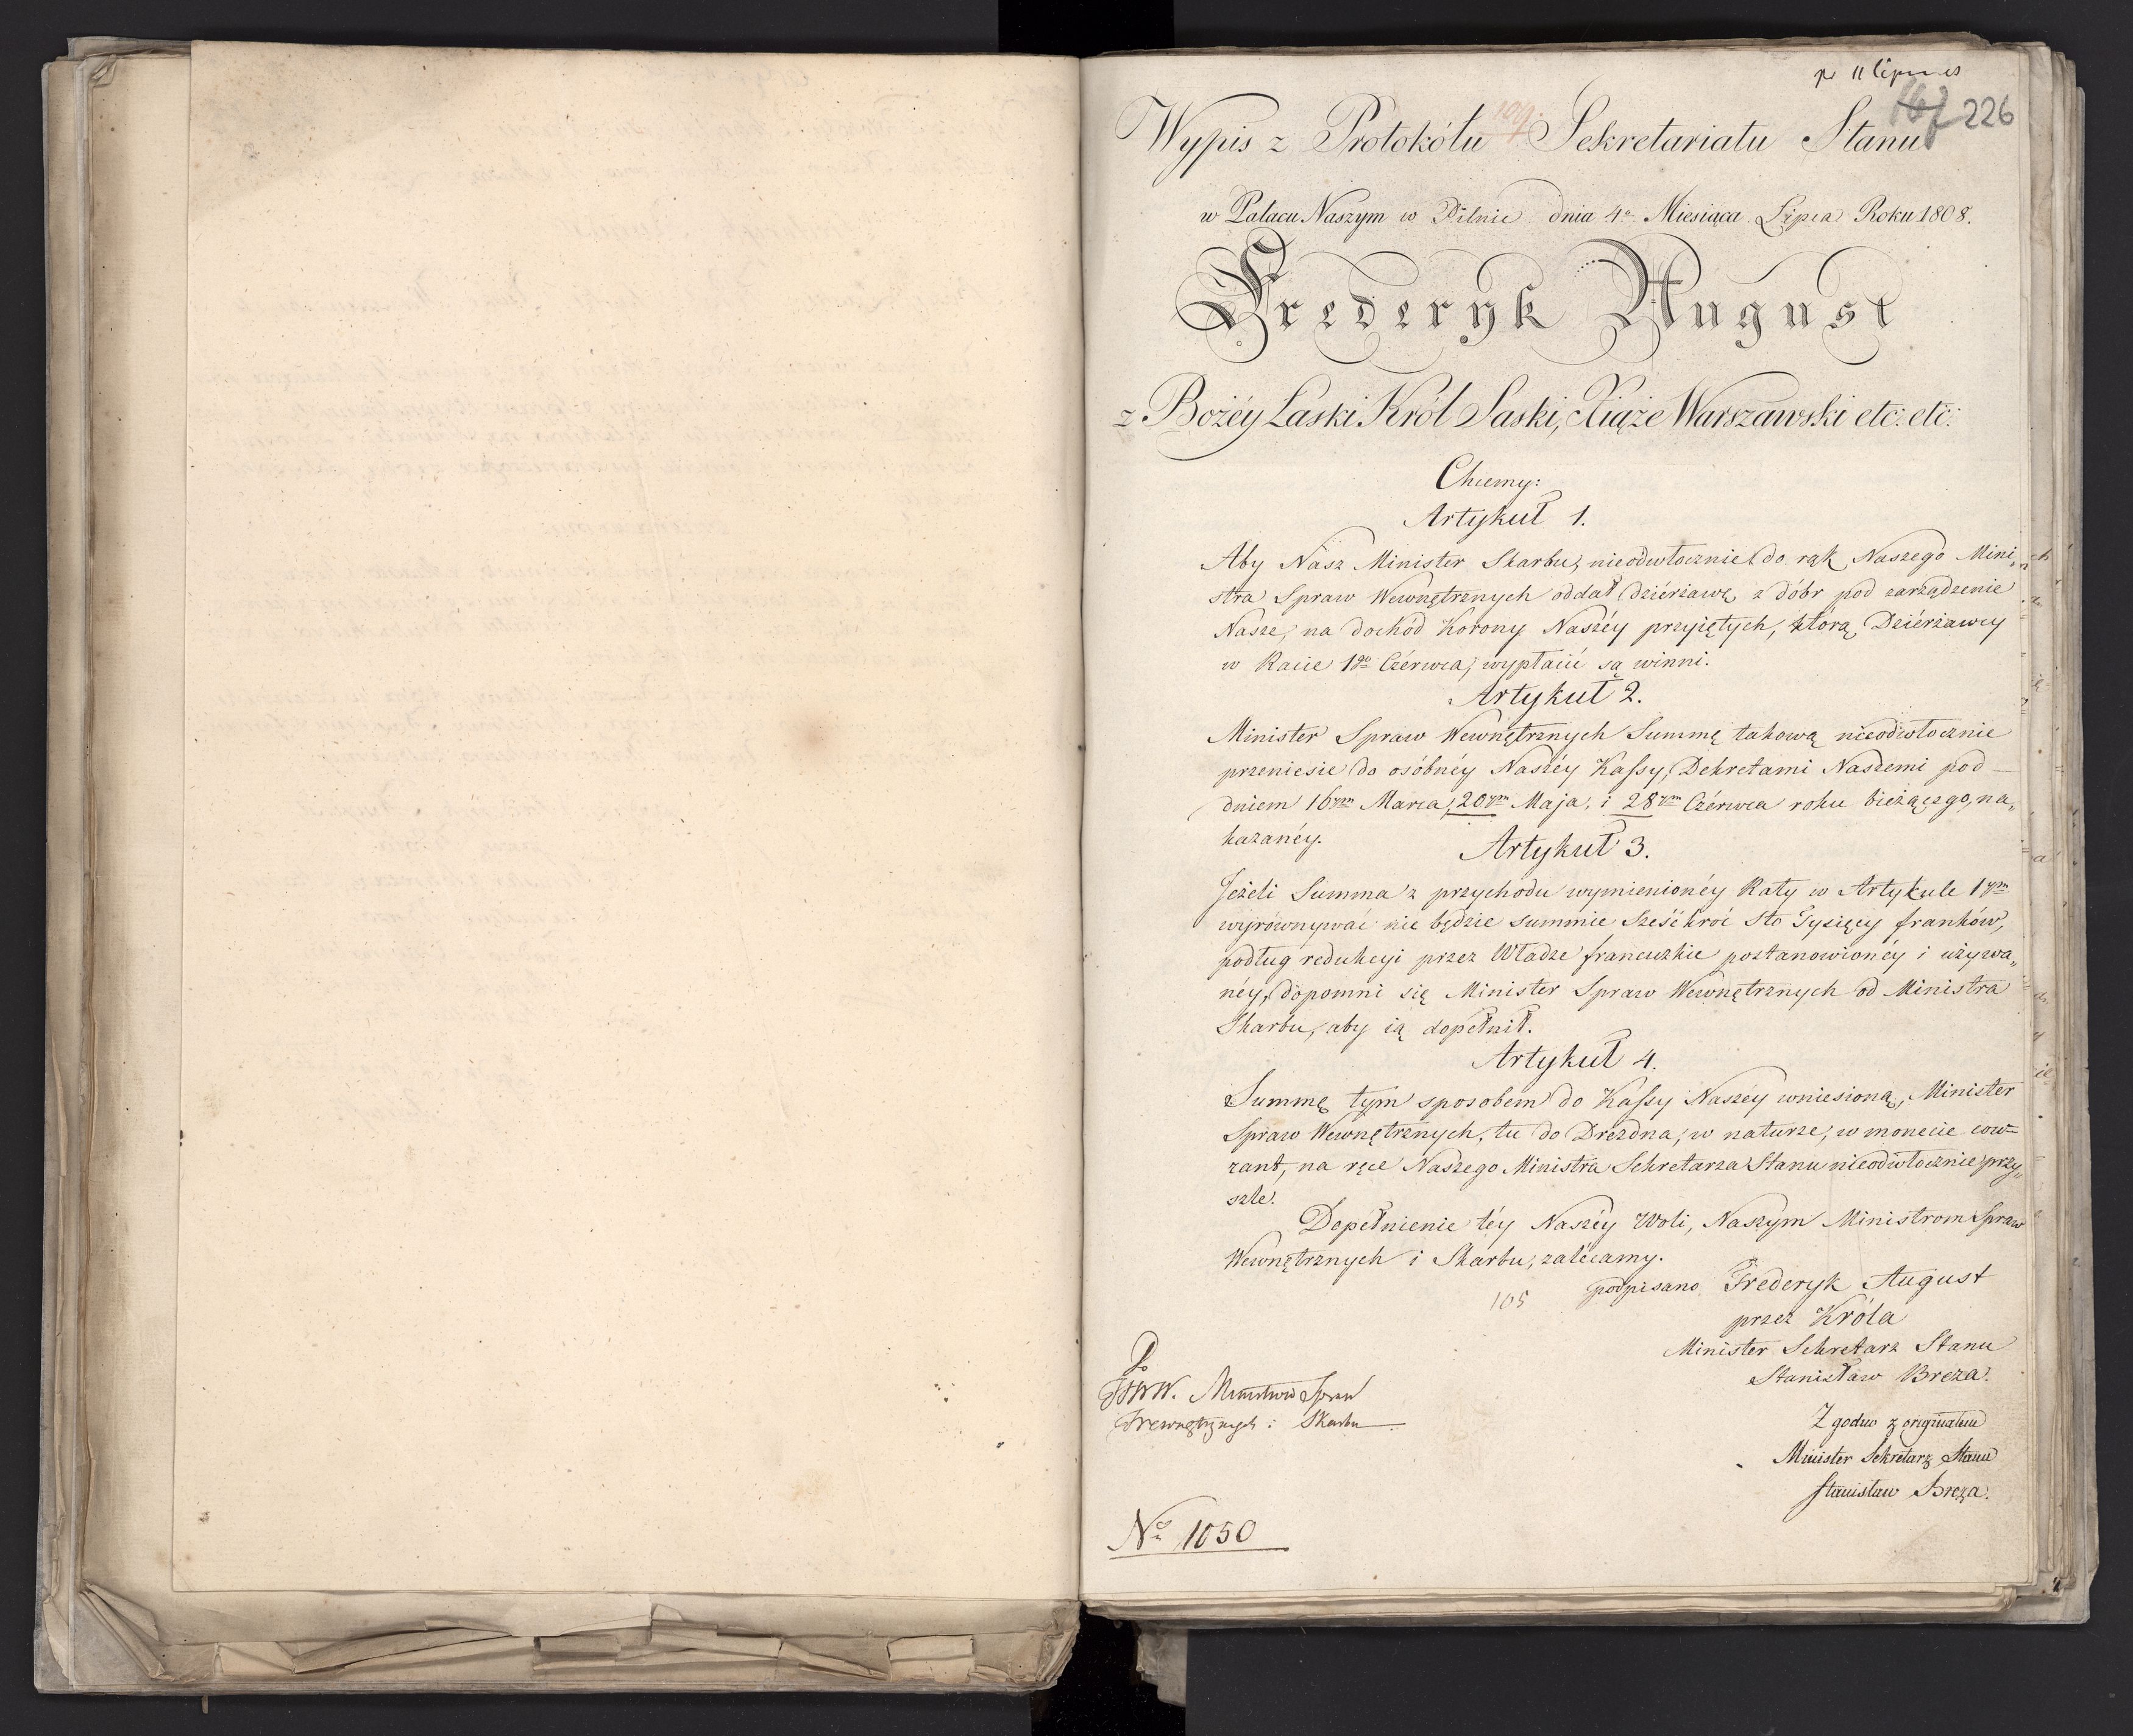 pr 11 Lipca
167 226
109.
Wypis z Protokółu Sekretariatu Stanu
w Pałacu Naszym w Pilnic dnia 4º Miesiąca Lipca Roku 1808.
Frederyk August
z Bożéy Łaski Król Saski, Xiąże Warszawski etc: etc:
Chcemy:
Artykuł 1.
Aby Nasz Minister Skarbu, nieodwłocznie do rąk Naszego Mini„
stra Spraw Wewnętrznych oddał dzierżawę z dóbr pod zarządzenie
Nasze, na dochód Korony Naszéy przyiętych, którą Dzierżawcy
w Racie 1go Czérwca, wypłacić są winni.
Artykuł 2.
Minister Spraw Wewnętrznych Summę takową nieodwłocznie
przeniesie do osóbnéy Naszéy Kassy, Dekretami Naszemi pod
dniem 16ym Marca, 20ym Maja, i 28ym Czérwca roku bieżącego, na„
kazanéy.
Artykuł 3.
Jeżeli Summa z przychodu wymienionéy Raty w Artykule 1ym
wyrównywać nie będzie summie Sześćkroć Sto Tysięcy franków,
podług redukcyi przez Władze francuzkie postanowionéy i używa„
néy, dopomni się Minister Spraw Wewnętrznych od Ministra
Skarbu, aby ią dopełnił.
Artykuł 4.
Summę tym sposobem do Kassy Naszéy wniesioną, Minister
Spraw Wewnętrznych, tu do Drezdna, w naturze, w monecie cou=
rant, na ręce Naszego Ministra Sekretarza Stanu nieodwłocznie przy„
szle.
Dopełnienie téy Naszéy Woli, Naszym Ministrom Spraw
Wewnętrznych i Skarbu, zalécamy.
podpisano Frederyk August
105
przez Króla
Minister Sekretarz Stanu
Stanisław Breza.
Do
JJWW. Ministrów Spraw
Wewnętrznych i Skarbu
Zgodno z originałem
Minister Sekretarz Stanu
Stanisław Breza.
No 1050